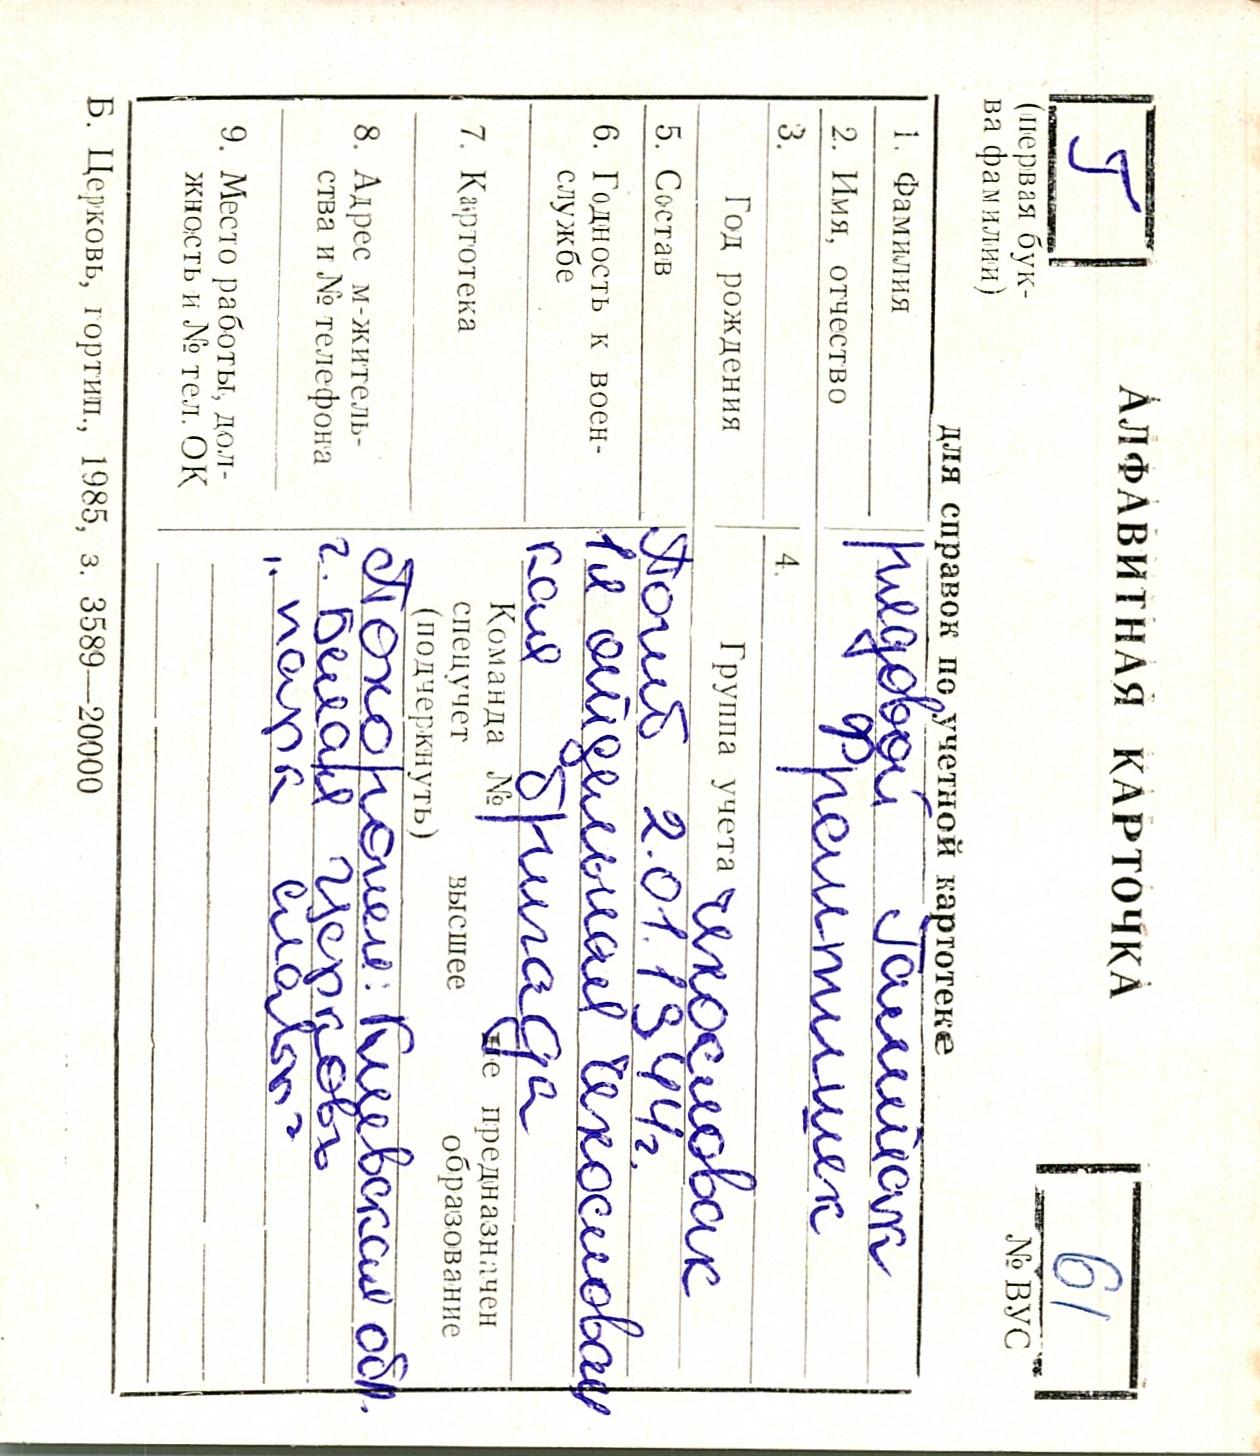 Г
(первая бук-
ва фамилии)
АЛФАВИТНАЯ КАРТОЧКА
61
№ ВУС
для справок по учетной картотеке
1. Фамилия рядовой Ганчак
2. Имя, отчество Франтишек
3. Год рождения
4. Группа учета чехословак
5. Состав Погиб 2.01.1944г.
6. Годность к воен-
службе
1я отдельная чехословац
кая бригада
7. Картотека
Команда № не предназначен
спецучет высшее образование
(подчеркнуть)
8. Адрес м-житель-
ства и № телефона
Похоронен: Киевская обл.
г. Белая Церковь
9. Место работы, дол-
жность и № тел. ОК
"парк славы"
Б. Церковь, гортип., 1985, з. 3589—20000